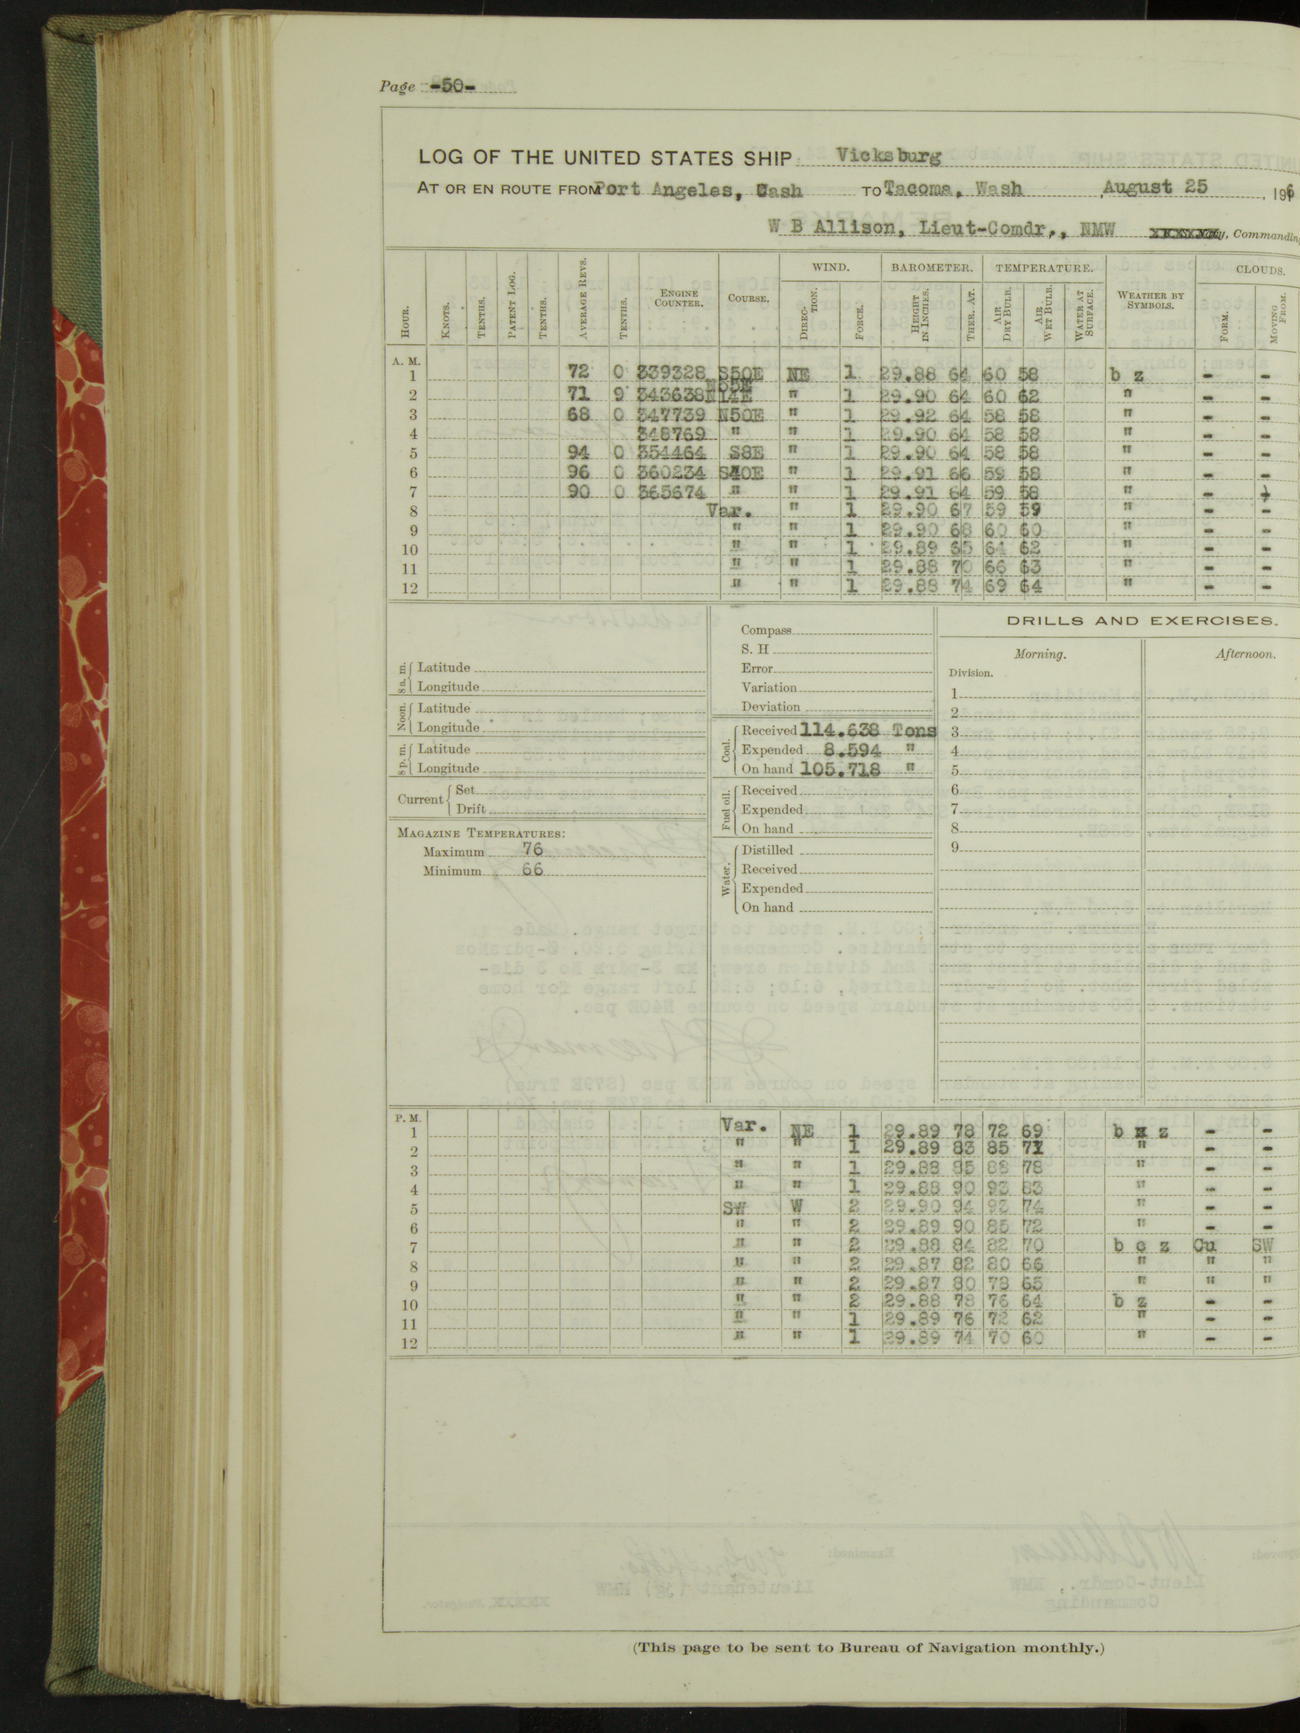 Page -50-
LOG OF THE UNITED STATES SHIP Vicksburg
AT OR EN ROUTE FROM Port Angeles, Cash TO Tacoma, Wash , August 25 , 1916
W B Allison, Lieut-Comdr,, NMW xxxxxxx y, Commanding
HOUR. KNOTS. TENTHS. PATENT LOG. TENTHS. AVERAGE REVS. TENTHS. ENGINE COUNTER. COURSE. WIND. DIRECTION. FORCE. BAROMETER. HEIGHT IN INCHES. THER. AT. TEMPERATURE. AIR DRY BULB. AIR WET BULB. WATER AT SURFACE. WEATHER BY SYMBOLS. CLOUDS. FORM. MOVING FROM.
A. M.
1 72 0 339328 S50E NE 1 29.88 64 60 58 b z - -
N55E
2 71 9 343638 N14E " 1 29.90 64 60 62 " - -
3 68 0 347739 N50E " 1 29.92 64 58 58 " - -
4 348769 " " 1 29.90 64 58 58 " - -
5 94 0 354464 S8E " 1 29.90 64 58 58 " - -
6 96 0 360234 S40E " 1 29.91 66 59 58 " - -
7 90 0 365674 " " 1 29.91 64 59 58 " - -
8 Var. " 1 29.90 67 59 59 " - -
9 " " 1 29.90 68 60 60 " - -
10 " " 1 29.89 65 64 62 " - -
11 " " 1 29.88 70 66 63 " - -
12 " " 1 29.88 74 69 64 " - -
8 a. m. Latitude
Longitude
Noon. Latitude
Longitude
8 p. m. Latitude
Longitude
Current Set
Drift
MAGAZINE TEMPERATURES:
Maximum 76
Minimum 66
Compass
S. H
Error
Variation
Deviation
Coal. Received 114.638 Tons
Expended 8.594 "
On hand 105.718 "
Fuel oil. Received
Expended
On hand
Water. Distilled
Received
Expended
On hand
DRILLS AND EXERCISES.
Morning. Afternoon.
Division.
1
2
3
4
5
6
7
8
9
P. M.
1 Var. NE 1 29.89 78 72 69 b x z - -
2 " " 1 29.89 83 85 71 " - -
3 " " 1 29.88 85 88 78 " - -
4 " " 1 29.88 90 93 83 " - -
5 SW W 2 29.90 94 92 74 " - -
6 " " 2 29.89 90 85 72 " - -
7 " " 2 29.88 84 82 70 b c z Cu SW
8 " " 2 29.87 82 80 66 " " "
9 " " 2 29.87 80 78 65 " " "
10 " " 2 29.88 78 76 64 b z - -
11 " " 1 29.89 76 72 62 " - -
12 " " 1 29.89 74 70 60 " - -
(This page to be sent to Bureau of Navigation monthly.)